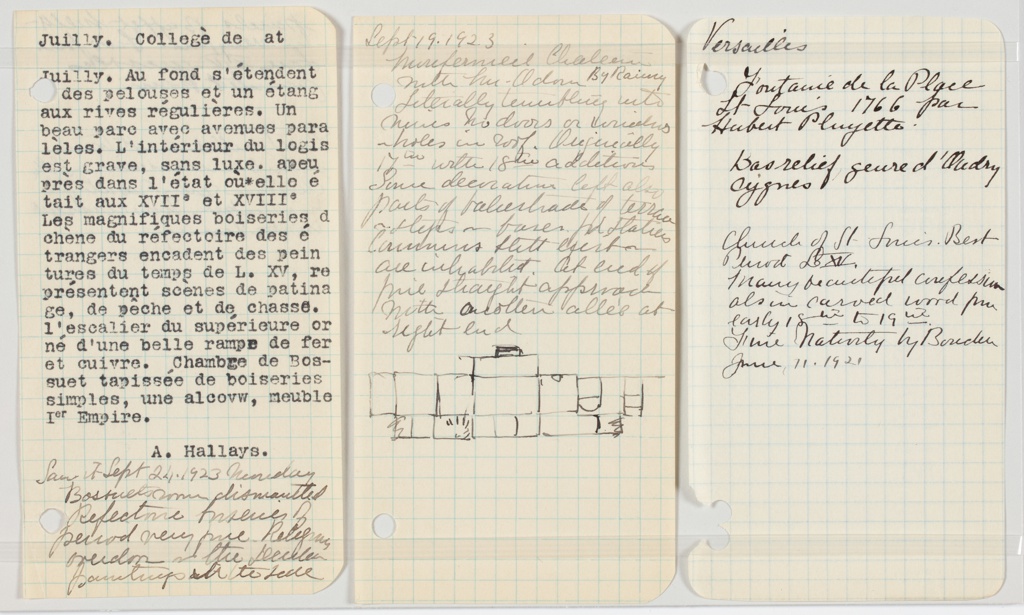 Juilly. Collegè de at
Juilly. Au fond s'étendent
des pelouses et un étang
aux rives régulières. Un
beau parc avec avenues para
lèles. L'intérieur du logis
est grave, sans luxe. apeu
près dans l'état où*ello é
tait aux XVIIe et XVIIIe
Les magnifiques boiseries d
chène du réfectoire des é
trangers encadent des pein
tures du temps de L. XV, re
présentent scènes de patina
ge, de pêche et de chasse.
l'escalier du supérieure or
né d'une belle rampe de fer
et cuivre. Chambre de Bos-
suet tapissée de boiseries
simples, une alcovw, meuble
Ier Empire.
A. Hallays.
Saw it Sept 24.1923 Monday
Bossuets room dismantled
Refectoire boiseries of
period very fine. Religious
overdoor in the
paintings to side
Sept 19.1923
Unrefermeil Chateau
with Mr. Odom By Rainy
Literally tumbling into
ruins no doors or windows
holes in roof. Originally
17th with 18th additions
Some decoration left also
parts of balustrade of terrace
steps & bases for statues
Communs still exist &
are inhabited. At end of
fine straight approach
with another allée at
right end
Versailles
Fontaine de la Place
St Louis 1766 par
Hubert Pluyette.
Bas relief genre d'Oudry
cygnes
Church of St. Louis. Best
Period L XV.
Many beautiful confession
als in carved wood from
early 18th to 19th.
Fine Nativity by Boucher
June, 11. 1921